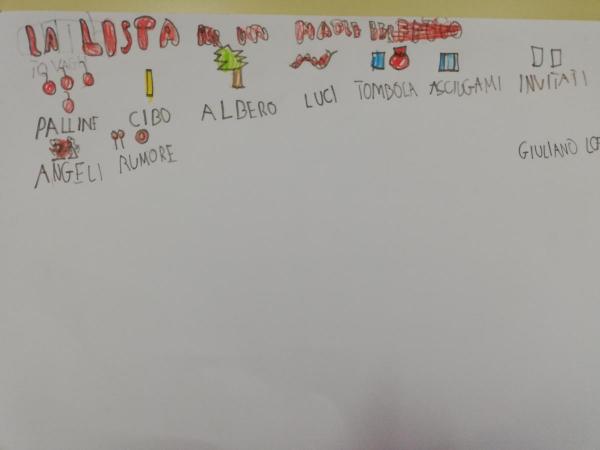 LA LISTA
PALLINE CIBO ALBERO LUCI TOMBOLA ASCIUGAMI INVITATI
ANGELI RUMORE GIULIANO